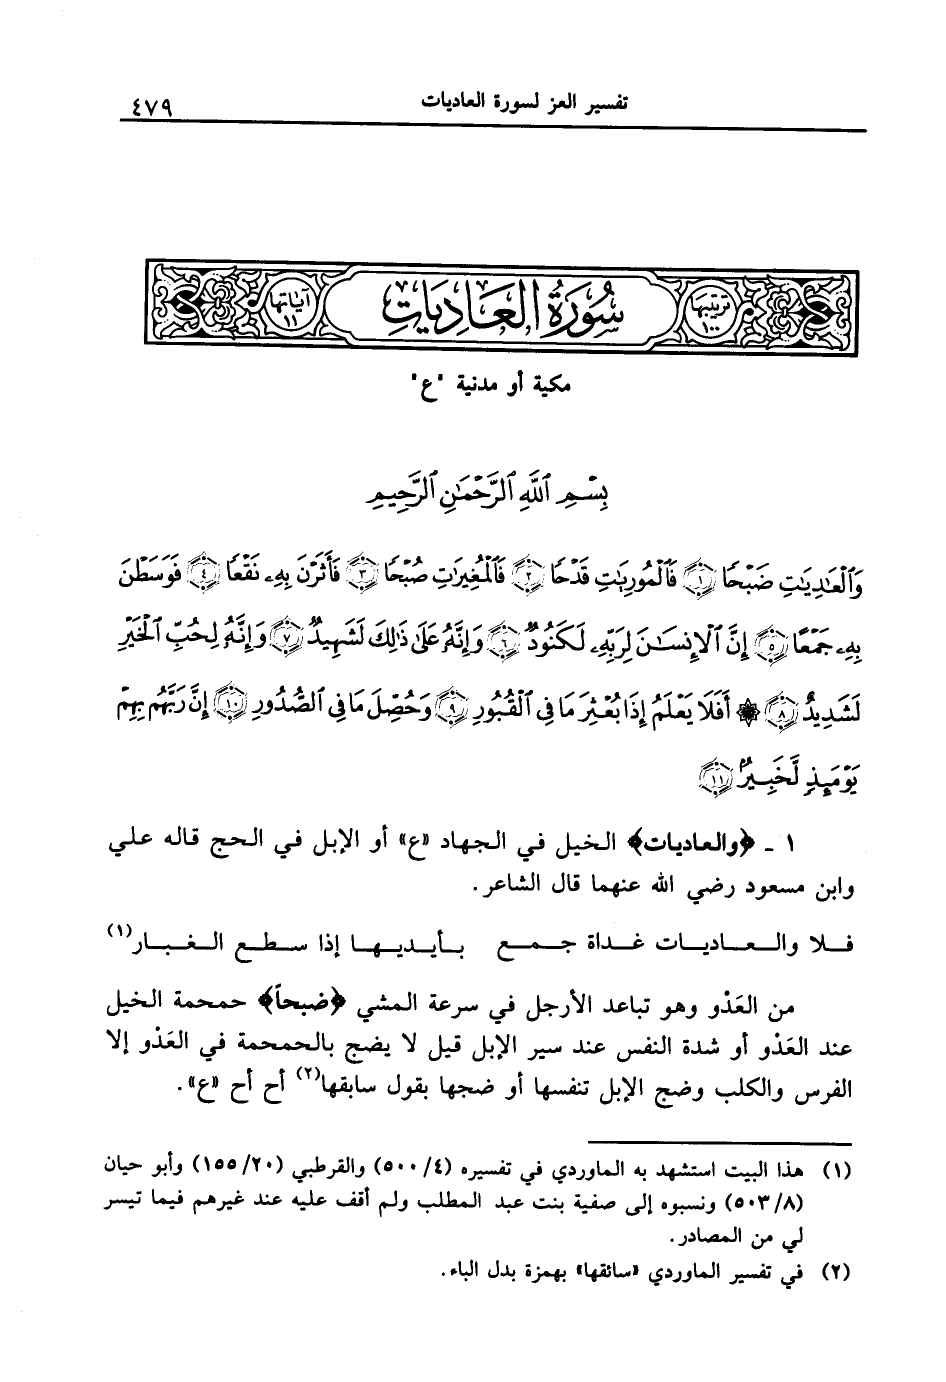 تفسير العز لسورة العاديات
٤٧٩
ترتيبها ١٠٠
سُورَةُ العَادِيَاتِ
آياتها ١١
مكية أو مدنية "ع"
بِسْمِ ٱللَّهِ ٱلرَّحْمَٰنِ ٱلرَّحِيمِ
وَٱلْعَٰدِيَٰتِ ضَبْحًا ١ فَٱلْمُورِيَٰتِ قَدْحًا ٢ فَٱلْمُغِيرَٰتِ صُبْحًا ٣ فَأَثَرْنَ بِهِۦ نَقْعًا ٤ فَوَسَطْنَ
بِهِۦ جَمْعًا ٥ إِنَّ ٱلْإِنسَٰنَ لِرَبِّهِۦ لَكَنُودٌ ٦ وَإِنَّهُۥ عَلَىٰ ذَٰلِكَ لَشَهِيدٌ ٧ وَإِنَّهُۥ لِحُبِّ ٱلْخَيْرِ
لَشَدِيدٌ ٨ ۞ أَفَلَا يَعْلَمُ إِذَا بُعْثِرَ مَا فِى ٱلْقُبُورِ ٩ وَحُصِّلَ مَا فِى ٱلصُّدُورِ ١٠ إِنَّ رَبَّهُم بِهِمْ
يَوْمَئِذٍ لَّخَبِيرٌۢ ١١
١ - ﴿والعاديات﴾ الخيل في الجهاد «ع» أو الإبل في الحج قاله علي
وابن مسعود رضي الله عنهما قال الشاعر.
فلا والعاديات غداة جمع بأيديها إذا سطع الغبار(١)
من العَدْو وهو تباعد الأرجل في سرعة المشي ﴿ضبحاً﴾ حمحمة الخيل
عند العَدْو أو شدة النفس عند سير الإبل قيل لا يضج بالحمحمة في العَدْو إلا
الفرس والكلب وضج الإبل تنفسها أو ضجها بقول سابقها(٢) أح أح «ع».
(١) هذا البيت استشهد به الماوردي في تفسيره (٥٠٠/٤) والقرطبي (١٥٥/٢٠) وأبو حيان
(٥٠٣/٨) ونسبوه إلى صفية بنت عبد المطلب ولم أقف عليه عند غيرهم فيما تيسر
لي من المصادر.
(٢) في تفسير الماوردي «سائقها» بهمزة بدل الباء.